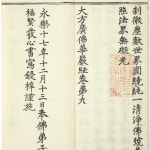 刹微塵數世界圍繞純一清淨佛號
照法界無礙光
大方廣佛華嚴經卷第九
永樂十七年十二月十三日奉佛弟子
福賢發心書寫鋟梓謹施